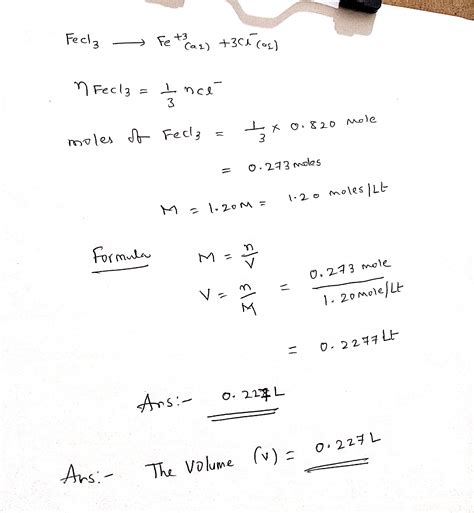 Fecl3 ⟶ Fe+3(aq) + 3Cl-(aq)
nFecl3 = 1/3 ncl-
moles of Fecl3 = 1/3 × 0.820 mole
= 0.273 moles
M = 1.20M = 1.20 moles/Lt
Formula M = n/V
V = n/M = 0.273 mole / 1.20mole/Lt
= 0.2277 Lt
Ans:- 0.227L
Ans:- The Volume (v) = 0.227L